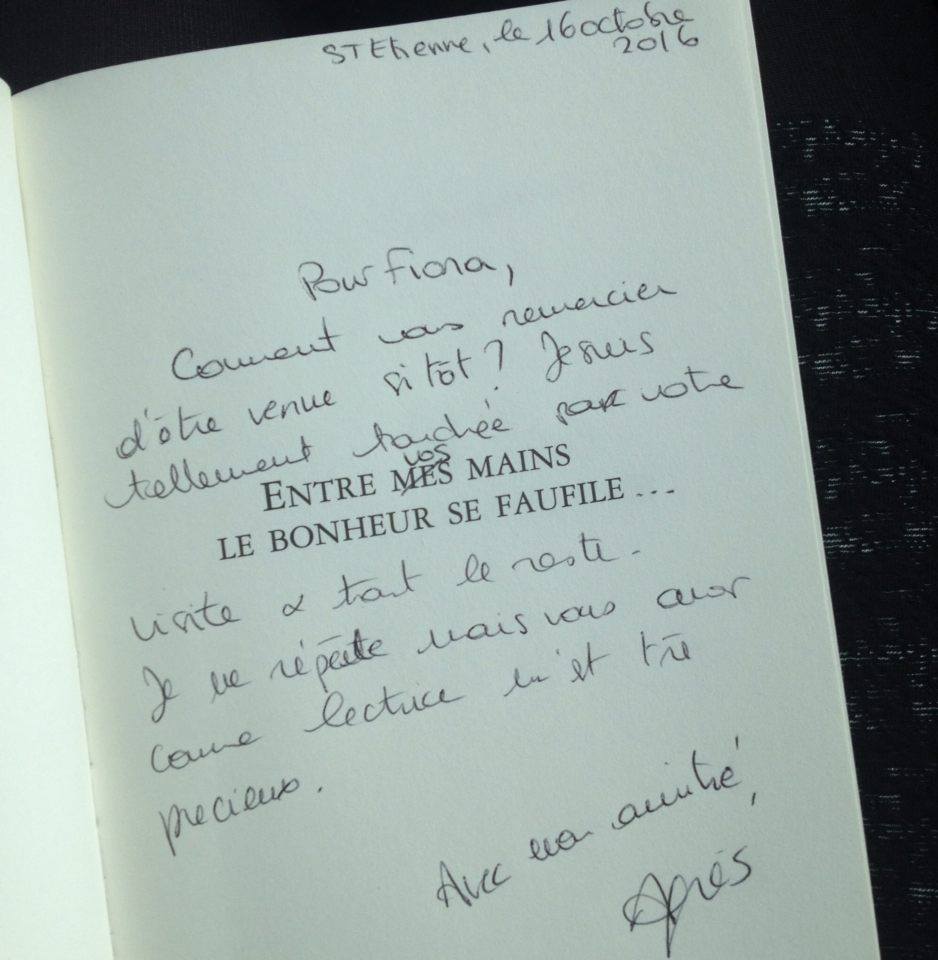 ST Etienne, le 16 octobre
2016
Pour Fiona,
Comment vous remercier
d'être venue si tôt ? Je suis
tellement touchée par votre
vos
ENTRE MES MAINS
LE BONHEUR SE FAUFILE ...
visite & tout le reste.
Je me répète mais vous avoir
comme lectrice m'est très
précieux.
Avec mon amitié,
Agnès